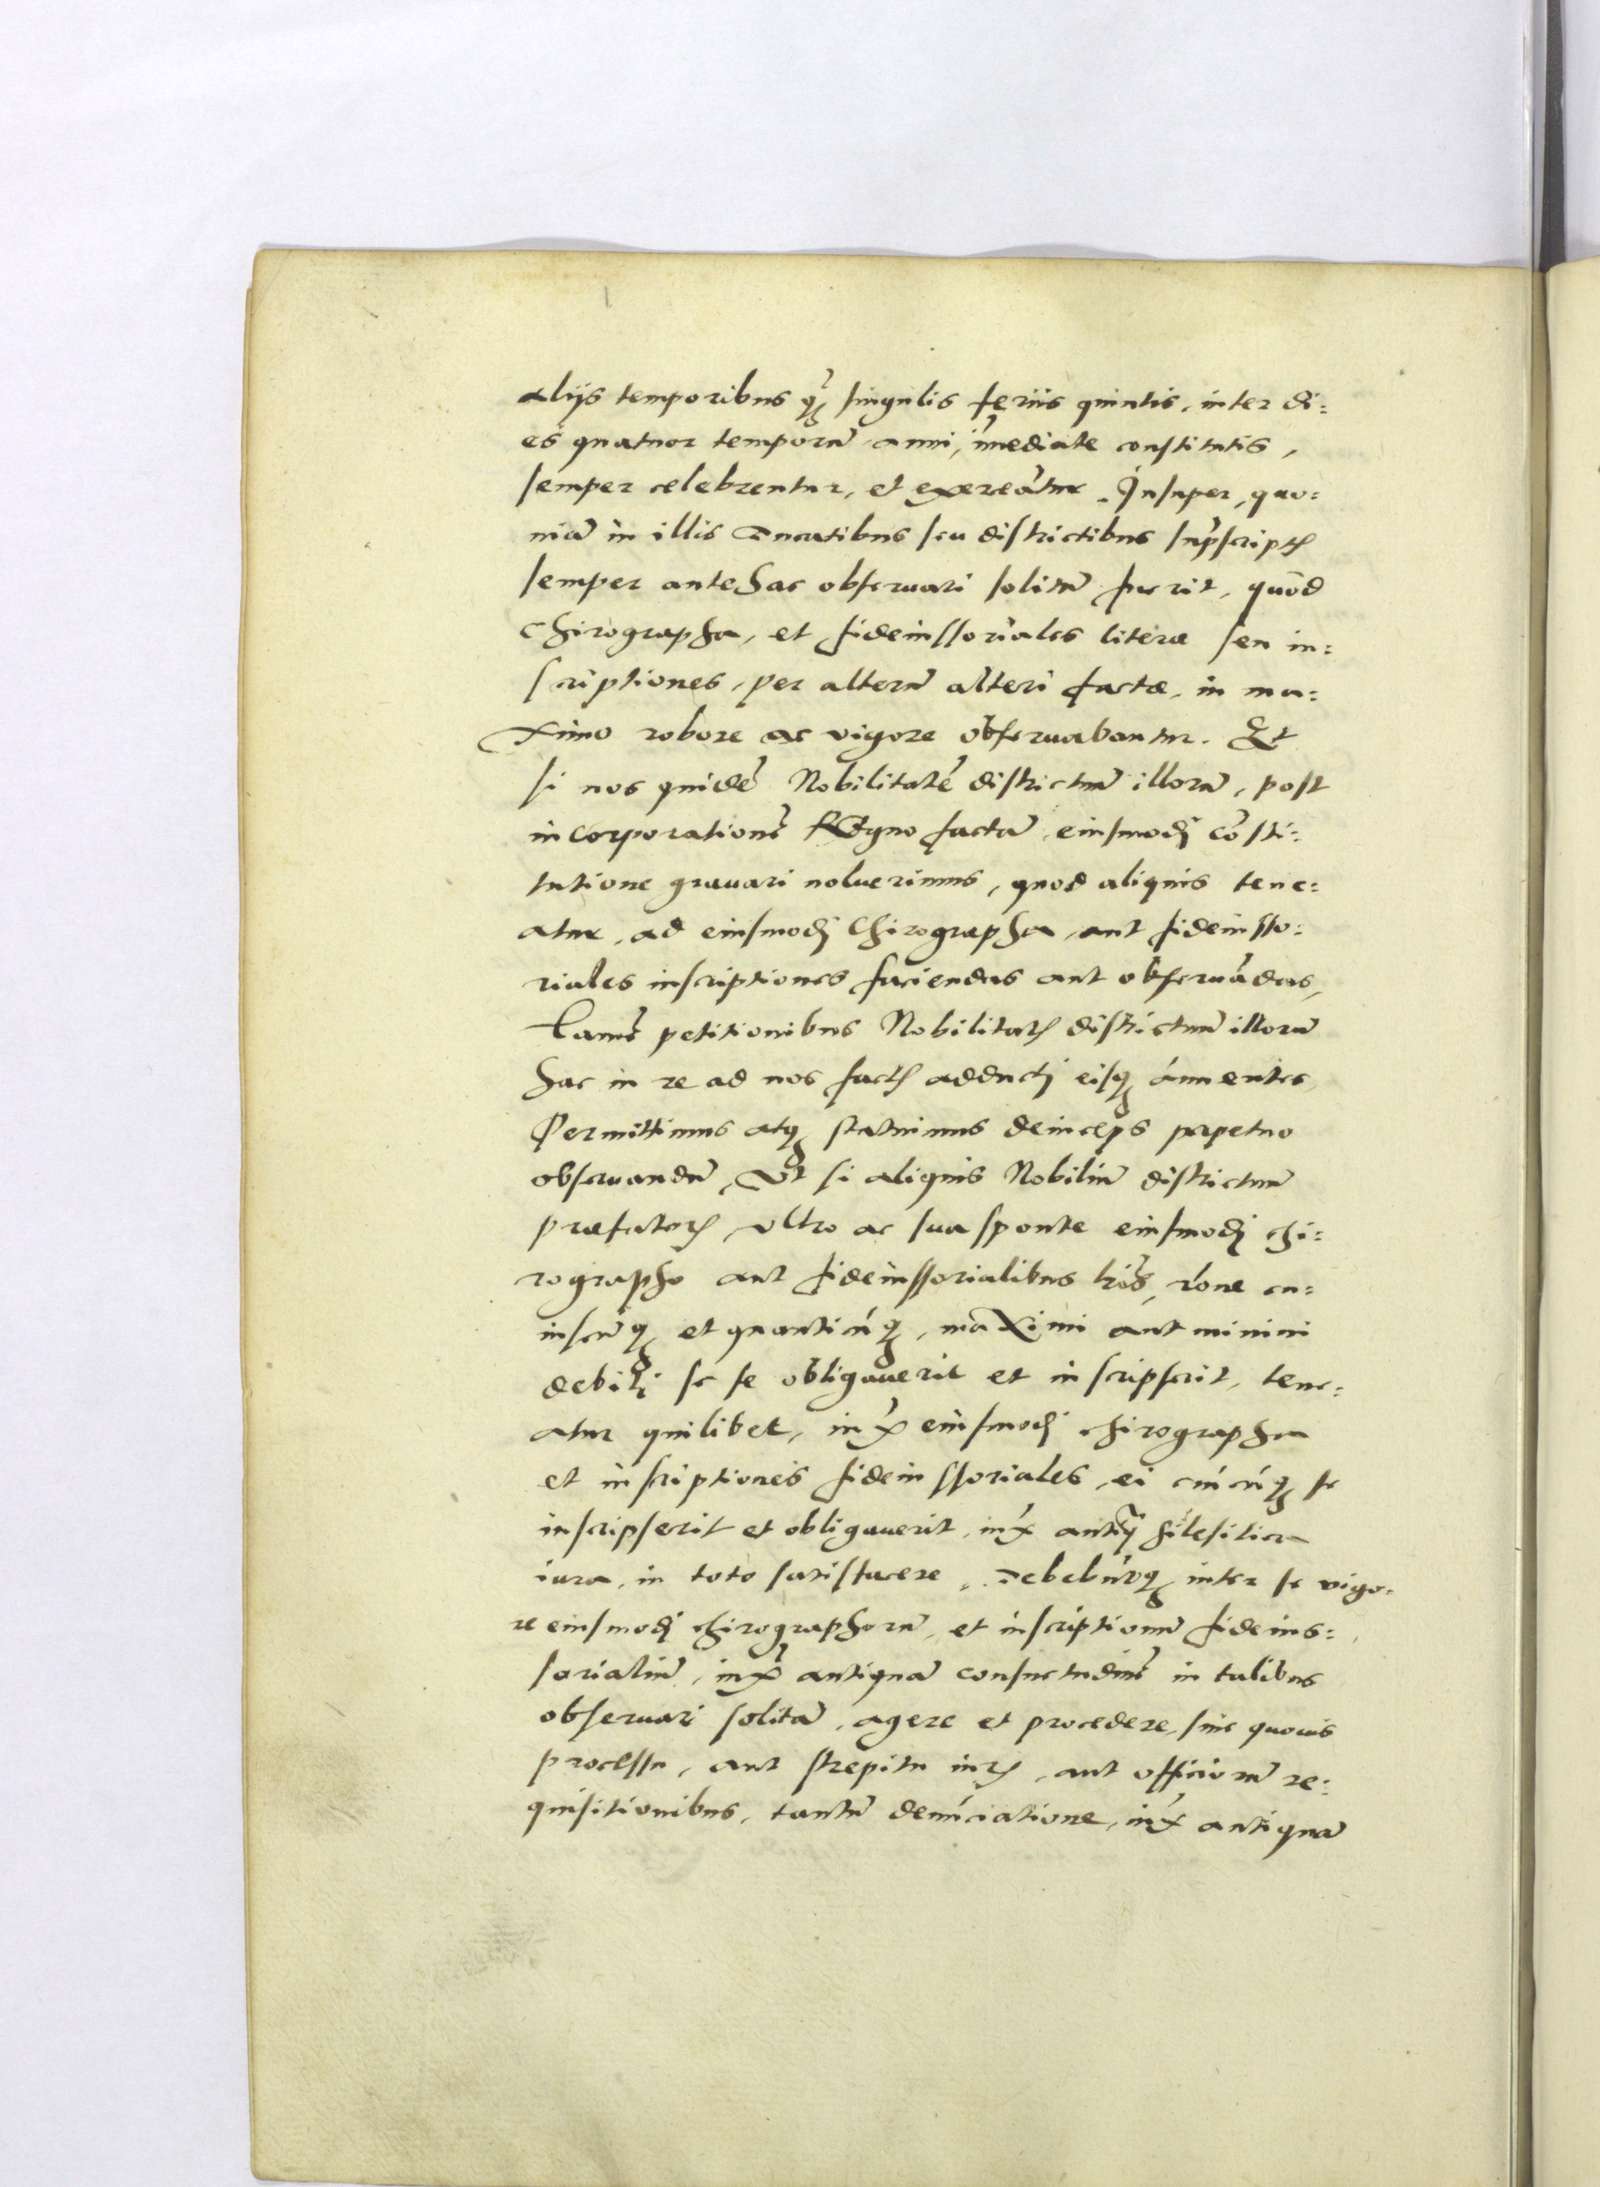 alijs temporibus q̨ singulis feriis quintis, inter di:
es quatuor temporū anni, īmediate constitutis,
semper celebrentur, et exereātur. Insuper, quo:
niā in illis Ducatibus seu districtibus sup̄script̨
semper antehac obseruari solitū fuerit, quòd
chirographa, et fideiussoriales literæ seu in:
scriptiones, per alterū alteri factæ, in ma:
ximo robore ac vigore obseruabantur. Et
si nos quidē Nobilitatē districtuū illorū, post
incorporationē Regno factā, eiusmodj cōsti:
tutione grauari noluerimus, quod aliquis tene:
atur, ad eiusmodj Chirographa, aut fideiusso:
riales inscriptiones faciendas aut obseruādas,
tamē petitionibus Nobilitat̨ districtuū illorū
hac in re ad nos fact̨ adductj eisq̨ ánnuentes,
Permittimus atq̨ statuimus deinceps ꝑpetuo
obseruandū, Vt si aliquis Nobiliū districtuū
præfator̨, vltro ac sua sponte eiusmodj chi:
rographo aut fideiussorialibus lr̄is, rōne cu:
iuscūq̨ et quanticūq̨, maximi aut minimi
debitj se se obligauerit et inscripserit, tene:
atur quilibet, iux̄ eiusmodj chirographa
et inscriptiones fideiussoriales, ei cuicūq̨ se
inscripserit et obligauerit, iux̄ antiq̄ Silesitica
iura, in toto satisfacere. Debebūtq̨ inter se vigo:
re eiusmodj chirographorū, et inscriptionū fideius:
sorialiū, iux̄ antiquā consuetudinē in talibus
obseruari solitā, agere et procedere, sine quouis
processu, aut strepitu iur̨, aut officiorū re:
quisitionibus, tantū denūciatione, iux̄ antiquā